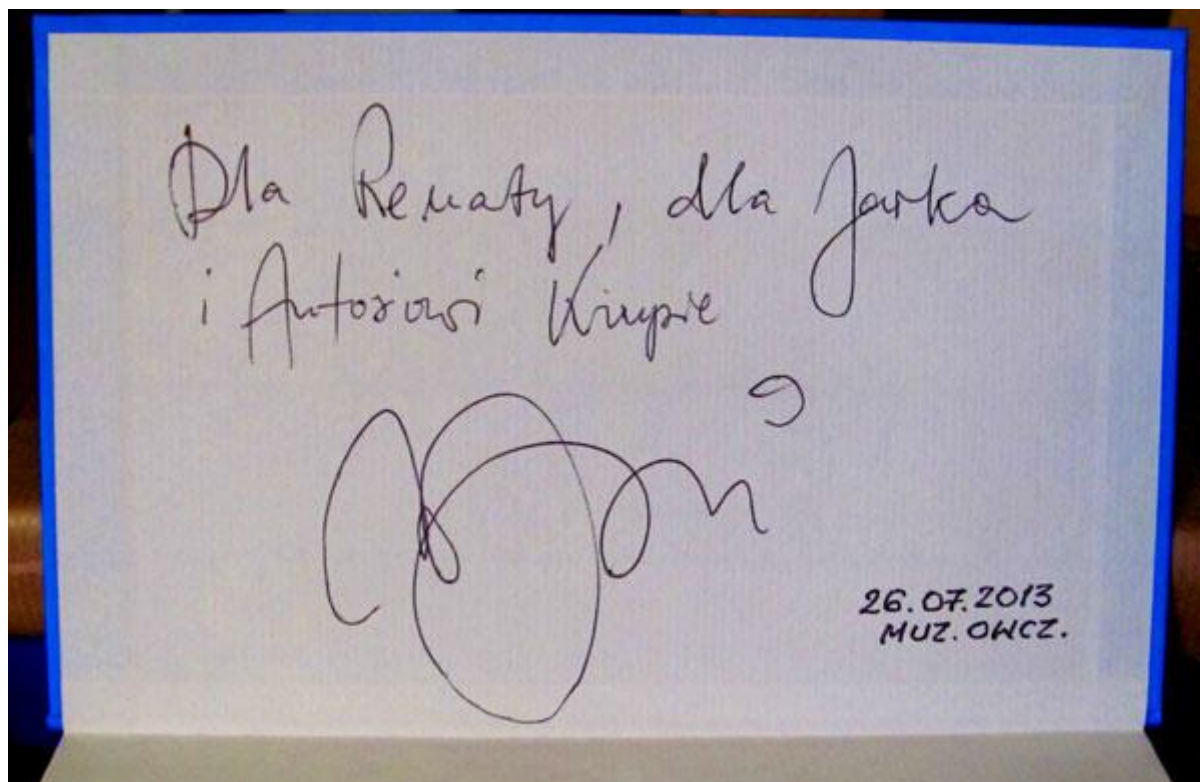 Dla Renaty, dla Jarka
i Antosiowi
26.07.2013
MUZ. OWCZ.